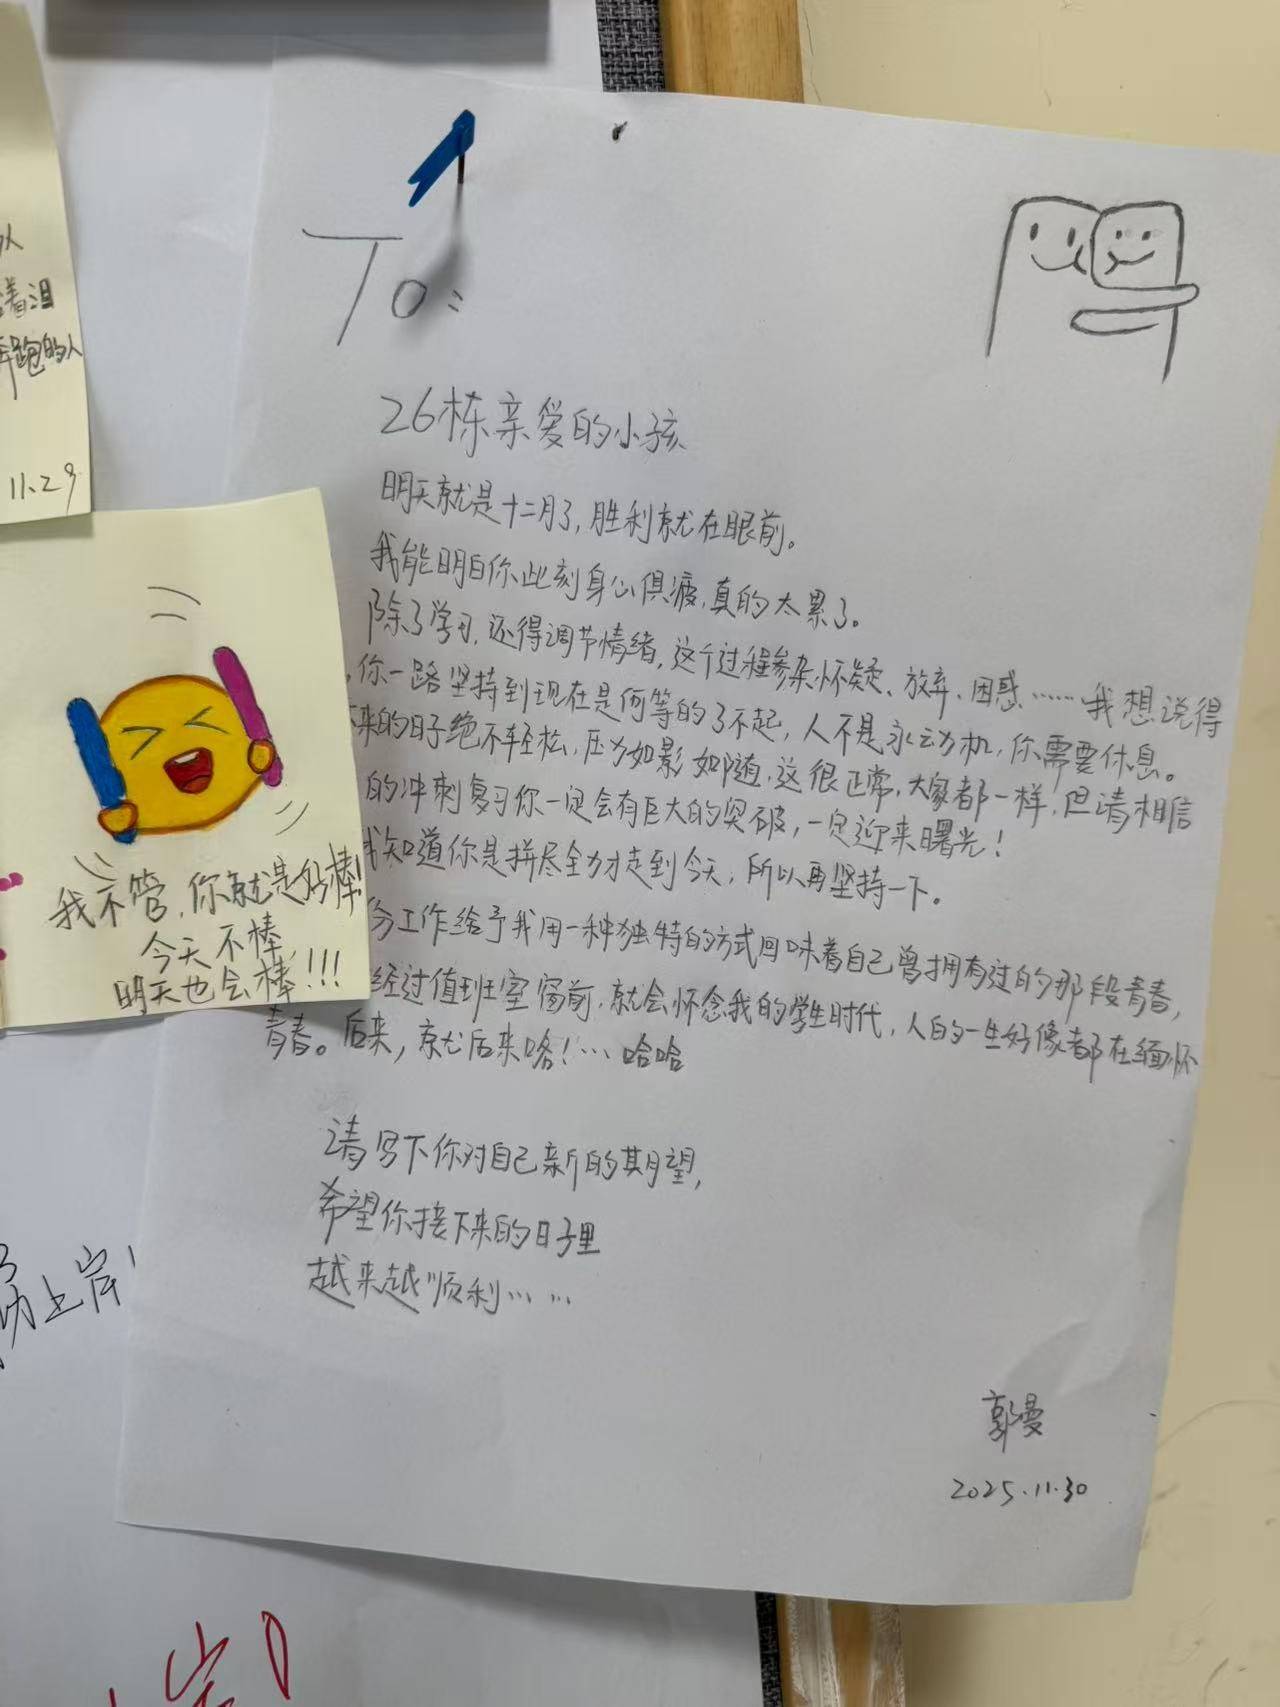 人
着泪
奔跑的人
11.29
To:
26栋亲爱的小孩
明天就是十二月了,胜利就在眼前。
我能明白你此刻身心俱疲,真的太累了。
除了学习,还得调节情绪,这个过程参杂怀疑、放弃、困惑……我想说得
,你一路坚持到现在是何等的了不起,人不是永动机,你需要休息。
来的日子绝不轻松,压力如影如随,这很正常,大家都一样,但请相信
的冲刺复习你一定会有巨大的突破,一定迎来曙光!
我知道你是拼尽全力才走到今天,所以再坚持一下。
份工作给予我用一种独特的方式回味着自己曾拥有过的那段青春,
经过值班室窗前,就会怀念我的学生时代,人的一生好像都在缅怀
青春。后来,就后来咯!…哈哈
请写下你对自己新的期望,
希望你接下来的日子里
越来越顺利……
郭曼
2025.11.30
我不管,你就是好棒!
今天不棒,
明天也会棒!!!
上岸!